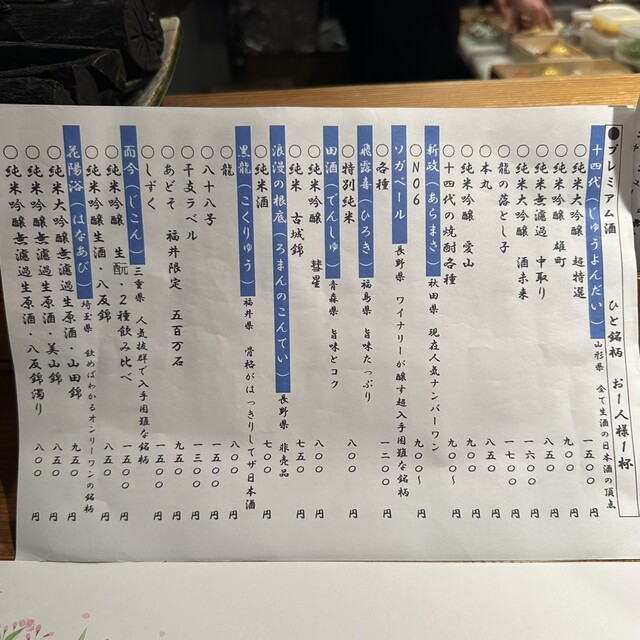 ●プレミアム酒 ひと銘柄 お一人様1杯
十四代（じゅうよんだい） 山形県 全て生酒の日本酒の頂点
〇純米大吟醸 超特選 一五〇〇円
〇純米吟醸 雄町 九〇〇円
〇純米無濾過 中取り 八五〇円
〇純米大吟醸 酒未来 一六〇〇円
〇龍の落とし子 一七〇〇円
〇本丸 八五〇円
〇純米吟醸 愛山 九〇〇円
〇十四代の焼酎各種 九〇〇～円
新政（あらまさ） 秋田県 現在人気ナンバーワン
〇NO6 九〇〇～円
ソガペール 長野県 ワイナリーが醸す超入手困難な銘柄
〇各種 一二〇〇円
飛露喜（ひろき） 福島県 旨味たっぷり
〇特別純米 八〇〇円
田酒（でんしゅ） 青森県 旨味とコク
〇純米吟醸 彗星 八〇〇円
〇純米 古城錦 七五〇円
浪漫の根底（ろまんのこんてい） 長野県 非売品
〇純米酒 七〇〇円
黒龍（こくりゅう） 福井県 骨格がはっきりしてザ日本酒
〇龍 八〇〇円
〇八十八号 一五〇〇円
〇干支ラベル 一三〇〇円
〇あどそ 福井限定 五百万石 九五〇円
〇しずく 一五〇〇円
而今（じこん） 三重県 人気抜群で入手困難な銘柄
〇純米吟醸 生酛・2種飲み比べ 一五〇〇円
〇純米吟醸生酒・八反錦 八五〇円
花陽浴（はなあび） 埼玉県 飲めばわかるオンリーワンの銘柄
〇純米大吟醸無濾過生原酒・山田錦 九五〇円
〇純米吟醸無濾過生原酒・美山錦 八五〇円
〇純米吟醸無濾過生原酒・八反錦濁り 八五〇円